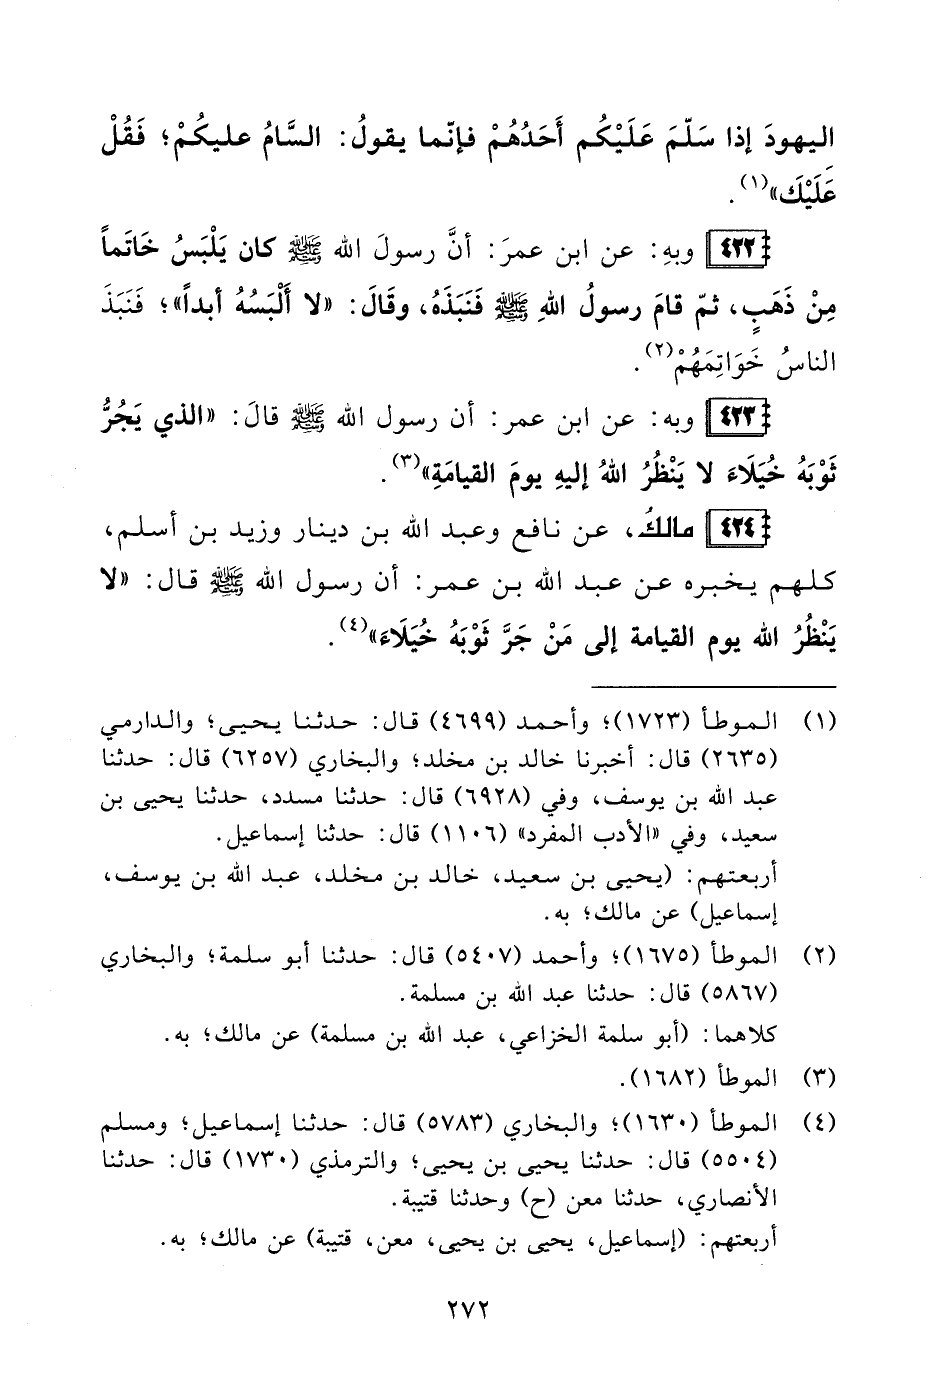 اليهودَ إذا سَلّمَ عَلَيْكُم أَحَدُهُمْ فإنّما يقولُ: السَّامُ عليكُمْ؛ فَقُلْ
عَلَيْكَ»(١).
٤٢٢ وبهِ: عن ابن عمرَ: أنَّ رسولَ الله ﷺ كان يَلْبَسُ خَاتَماً
مِنْ ذَهَبٍ، ثمّ قامَ رسولُ اللهِ ﷺ فَنَبَذَهُ، وقَالَ: «لا أَلْبَسُهُ أبداً»؛ فَنَبَذَ
الناسُ خَوَاتِمَهُمْ(٢).
٤٢٣ وبه: عن ابن عمر: أن رسول الله ﷺ قالَ: «الذي يَجُرُّ
ثَوْبَهُ خُيَلَاءَ لا يَنْظُرُ اللهُ إليهِ يومَ القيامَةِ»(٣).
٤٢٤ مالكُ، عن نافع وعبد الله بن دينار وزيد بن أسلم،
كلهم يخبره عن عبد الله بن عمر: أن رسول الله ﷺ قال: «لا
يَنْظُرُ الله يوم القيامة إلى مَنْ جَرَّ ثَوْبَهُ خُيَلَاءَ»(٤).
(١) الموطأ (١٧٢٣)؛ وأحمد (٤٦٩٩) قال: حدثنا يحيى؛ والدارمي
(٢٦٣٥) قال: أخبرنا خالد بن مخلد؛ والبخاري (٦٢٥٧) قال: حدثنا
عبد الله بن يوسف، وفي (٦٩٢٨) قال: حدثنا مسدد، حدثنا يحيى بن
سعيد، وفي «الأدب المفرد» (١١٠٦) قال: حدثنا إسماعيل.
أربعتهم: (يحيى بن سعيد، خالد بن مخلد، عبد الله بن يوسف،
إسماعيل) عن مالك؛ به.
(٢) الموطأ (١٦٧٥)؛ وأحمد (٥٤٠٧) قال: حدثنا أبو سلمة؛ والبخاري
(٥٨٦٧) قال: حدثنا عبد الله بن مسلمة.
كلاهما: (أبو سلمة الخزاعي، عبد الله بن مسلمة) عن مالك؛ به.
(٣) الموطأ (١٦٨٢).
(٤) الموطأ (١٦٣٠)؛ والبخاري (٥٧٨٣) قال: حدثنا إسماعيل؛ ومسلم
(٥٥٠٤) قال: حدثنا يحيى بن يحيى؛ والترمذي (١٧٣٠) قال: حدثنا
الأنصاري، حدثنا معن (ح) وحدثنا قتيبة.
أربعتهم: (إسماعيل، يحيى بن يحيى، معن، قتيبة) عن مالك؛ به.
٢٧٢